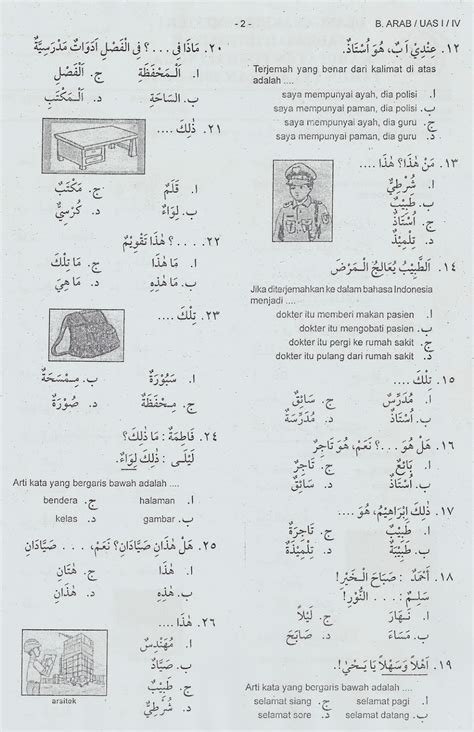 - 2 -
B. ARAB / UAS I / IV
١٢. عِنْدِيْ اَبٌ، هُوَ اُسْتَاذٌ.
Terjemah yang benar dari kalimat di atas
adalah ....
ا. saya mempunyai ayah, dia polisi
ب. saya mempunyai paman, dia polisi
ج. saya mempunyai ayah, dia guru
د. saya mempunyai paman, dia guru
١٣. مَنْ هٰذَا؟ هٰذَا ....
ا. شُرْطِيٌّ
ب. طَبِيْبٌ
ج. اُسْتَاذٌ
د. تِلْمِيْذٌ
١٤. اَلطَّبِيْبُ يُعَالِجُ الْـمَرْضَ
Jika diterjemahkan ke dalam bahasa Indonesia
menjadi ....
ا. dokter itu memberi makan pasien
ب. dokter itu mengobati pasien
ج. dokter itu pergi ke rumah sakit
د. dokter itu pulang dari rumah sakit
١٥. تِلْكَ ....
ا. مُدَرِّسٌ ج. سَائِقٌ
ب. اُسْتَاذٌ د. مُدَرِّسَةٌ
١٦. هَلْ هُوَ...؟ نَعَمْ، هُوَ تَاجِرٌ
ا. بَائِعٌ ج. تَاجِرٌ
ب. اُسْتَاذٌ د. سَائِقٌ
١٧. ذٰلِكَ اِبْرَاهِيْمُ، هُوَ ....
ا. طَبِيْبٌ ج. تَاجِرَةٌ
ب. طَبِيْبَةٌ د. تِلْمِيْذَةٌ
١٨. اَحْمَدُ : صَبَاحَ الْـخَيْرِ!
سَلِيْمٌ : ... النُّوْرِ!
ا. نَـهَارَ ج. لَيْلاً
ب. مَسَاءَ د. صَابَحَ
١٩. اَهْلاً وَسَهْلاً يَا يَـحْيٰ!.
Arti kata yang bergaris bawah adalah ....
ا. selamat pagi ج. selamat siang
ب. selamat datang د. selamat sore
٢٠. مَاذَا فِى...؟ فِى الْفَصْلِ اَدَوَاتٌ مَدْرَسِيَّةٌ
ا. اَلْـمَحْفَظَةِ ج. اَلْفَصْلِ
ب. السَّاحَةِ د. اَلْـمَكْتَبِ
٢١. ذٰلِكَ ....
ا. قَلَمٌ ج. مَكْتَبٌ
ب. لِوَاءٌ د. كُرْسِيٌّ
٢٢. ....؟ هٰذَا تَقْوِيْمٌ
ا. مَا هٰذَا ج. مَا تِلْكَ
ب. مَا هٰذِهِ د. مَا هِيَ
٢٣. تِلْكَ ....
ا. سَبُوْرَةٌ ب. مِـمْسَحَةٌ
ج. مِـحْفَظَةٌ د. صُوْرَةٌ
٢٤. فَاطِمَةُ : مَا ذٰلِكَ؟
لَيْلَى : ذٰلِكَ لِوَاءٌ.
Arti kata yang bergaris bawah adalah ....
ا. halaman ج. bendera
ب. gambar د. kelas
٢٥. هَلْ هٰذَانِ صَيَّادَانِ؟ نَعَمْ، ... صَيَّادَانِ
ا. هٰذَا ج. هٰتَانِ
ب. هٰذِهِ د. هٰذَانِ
٢٦. هٰذَا ....
ا. مُهَنْدِسٌ
ب. صَيَّادٌ
ج. طَبِيْبٌ
د. شُرْطِيٌّ
arsitek